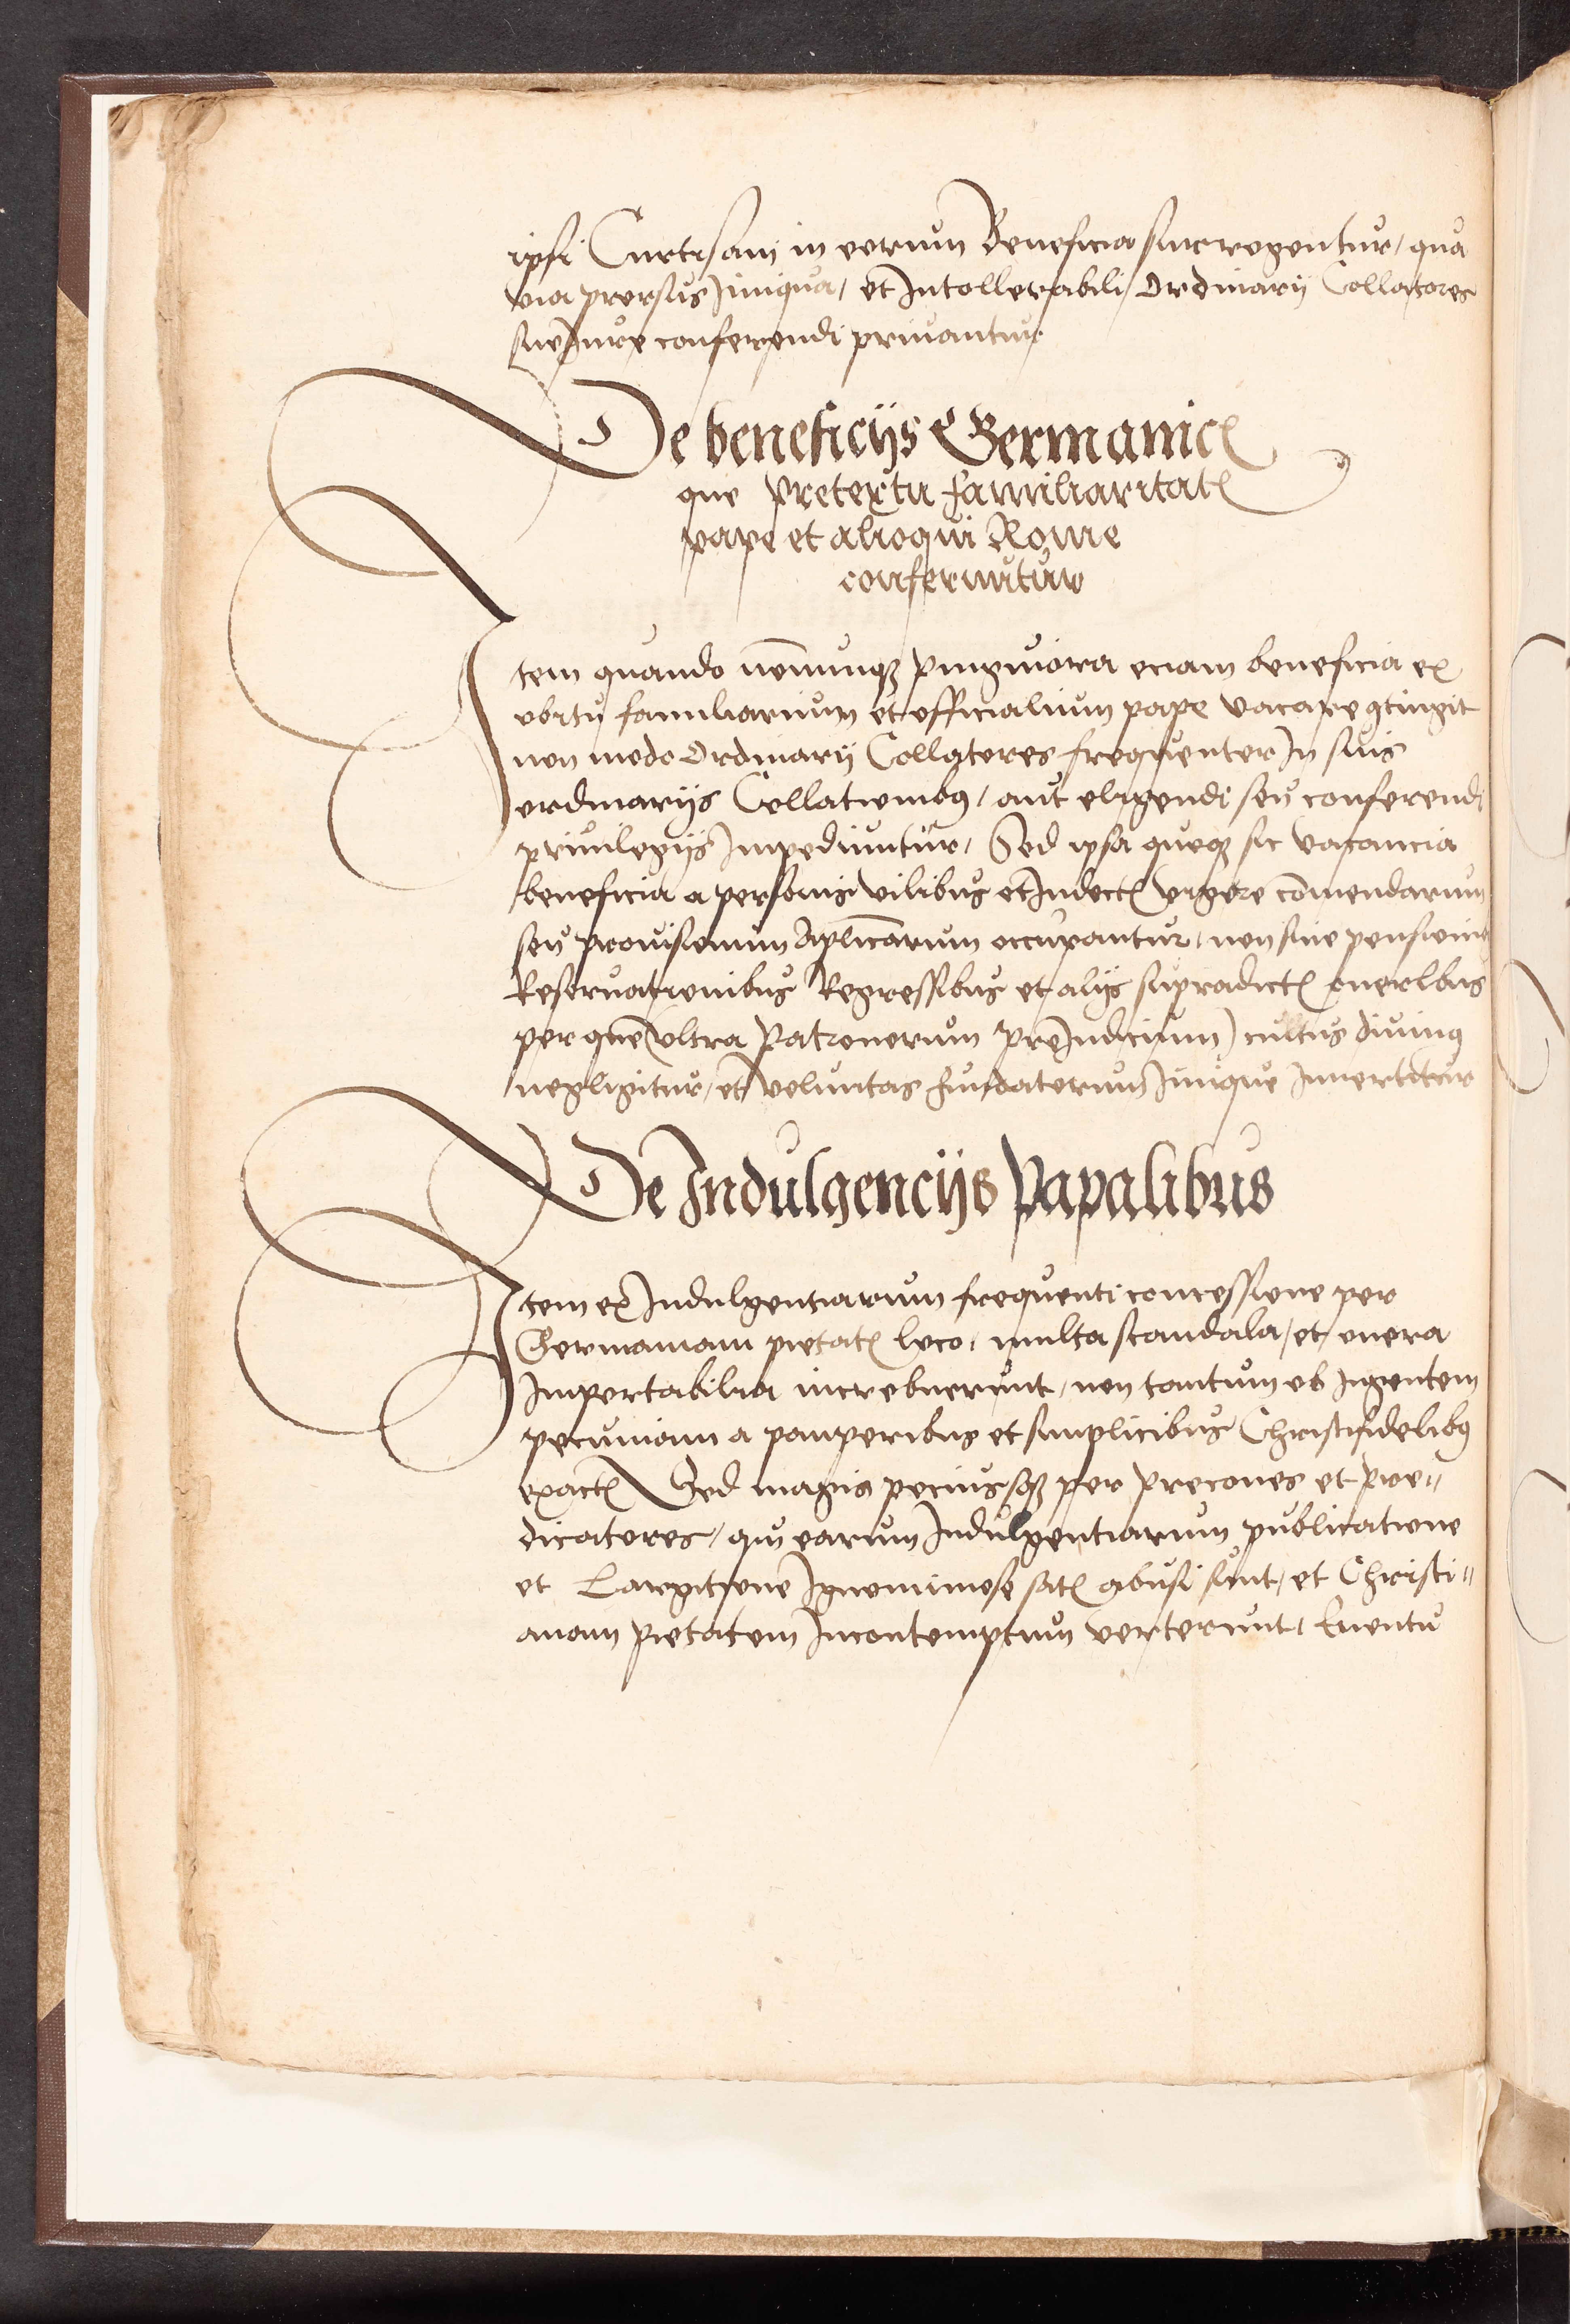 ipsi Curtisani in eorum Beneficia surrogentur, qua
via prorsus Iniqua, et Intollerabili, Ordinarij Collatores
suo Iure conferendi privantur
De beneficijs Germanicꝭ
que pretextu familiaritatꝭ
pape et alioqui Rome
conferuntur
Item quando nōnunqꝫ pinguiora eciam beneficia ex
obitu familiarium et officialium pape vacare ꝯtingit
non modo Ordinarij Collatores frequenter In suis
ordinarijs Collationibꝰ, aut eligendi seu conferendi
privilegijs Impediuntur, Sed ipsa quoqꝫ sic vacancia
beneficia a personis vilibus et Indoctꝭ vigore cōmendarum
seu provisionum Aplicārum occupantur, non sine pensionū
Reservationibus Regressibus et alijs supradictꝭ oneribus
per que (ultra Patronorum preIudicium) cultus divinꝰ
negligitur, et voluntas fundatorum Inique Invertitur
De Indulgencijs Papalibus
Item ex Indulgentiarum frequenti concessione per
Germaniam pietatꝭ loco, multa scandala, et onera
Importabilia increbuerunt, non tantum ob Ingentem
pecuniam a pauperibus et simplicibus Christifidelibꝰ
exactꝭ Sed magis peciussqꝫ per precones et pre〃
dicatores, qui earum Indulgentiarum publicatione
et Largitione Ignominiose satꝭ abusi sunt, et Christi〃
anam pietatem Incontemptum verterunt, Eventu